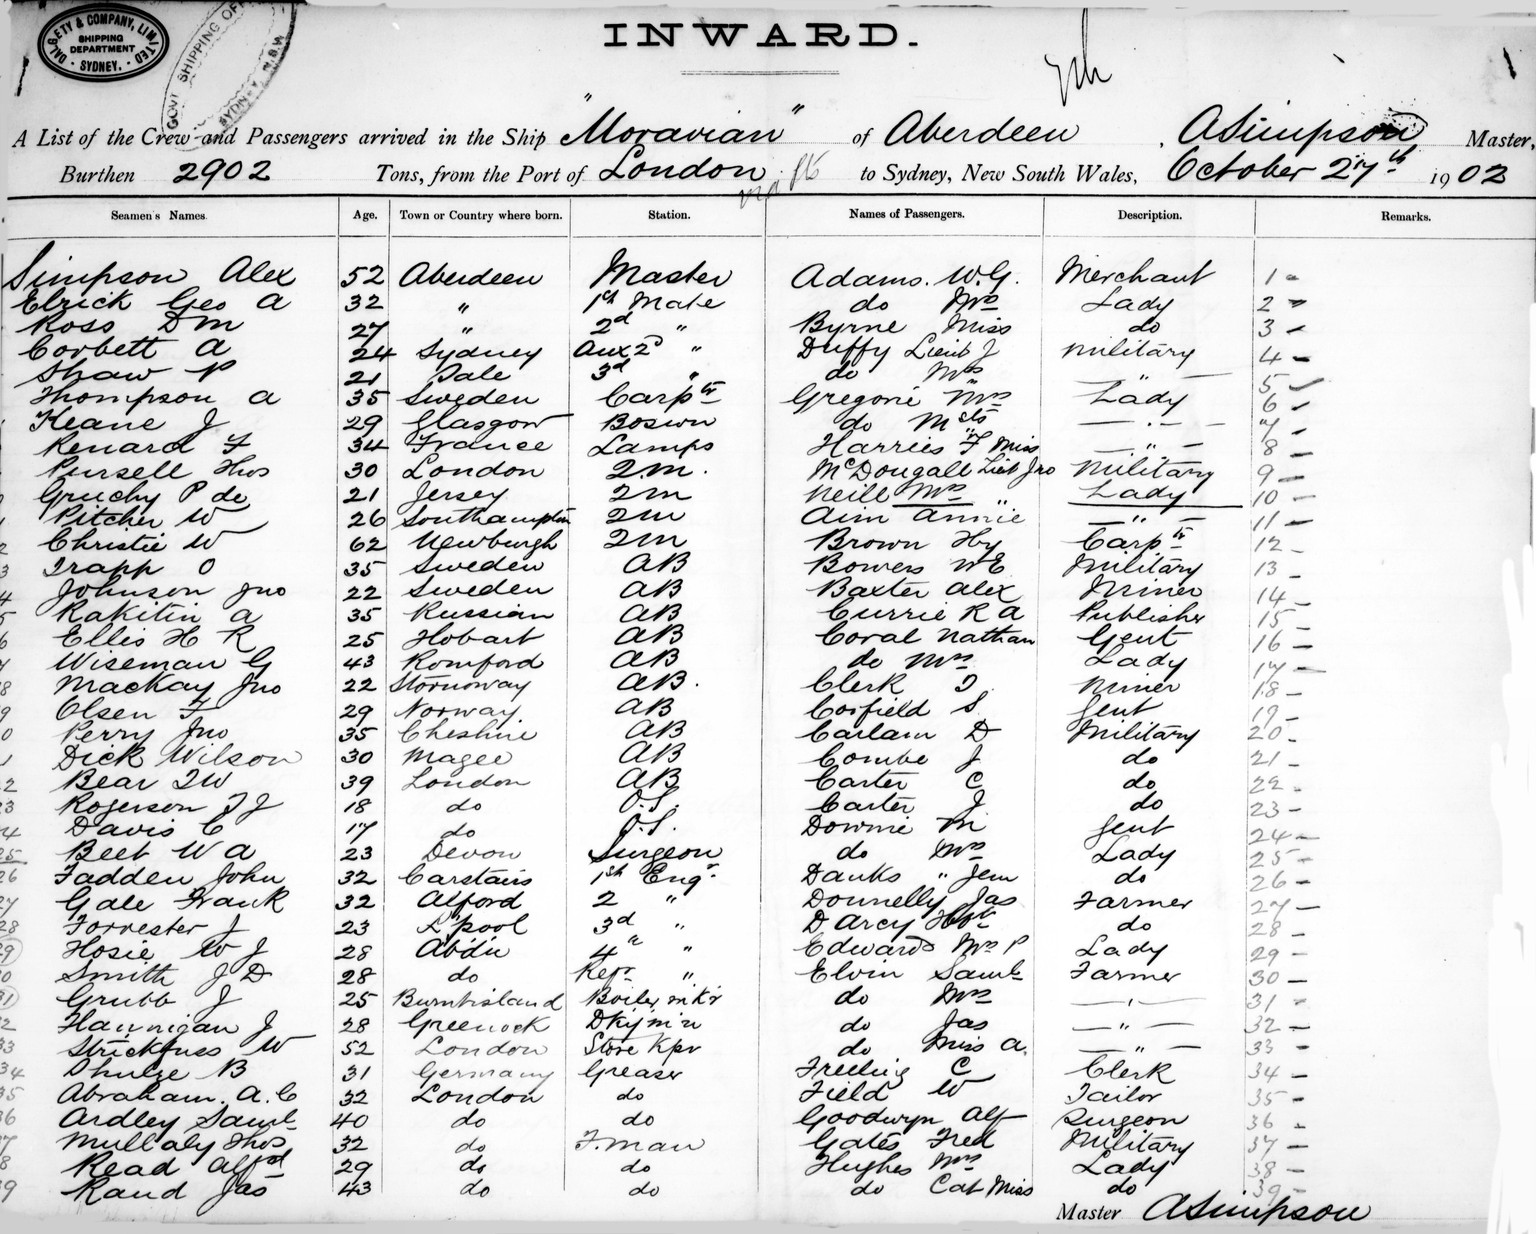 DALGETY & COMPANY, LIMITED
SHIPPING DEPARTMENT
SYDNEY.
GOVT SHIPPING OFFICE
SYDNEY N.S.W
INWARD.
A List of the Crew and Passengers arrived in the Ship "Moravian" of Aberdeen, ASimpson Master,
Burthen 2902 Tons, from the Port of London to Sydney, New South Wales, October 27th 1902
Seamen's Names. Age. Town or Country where born. Station. Names of Passengers. Description. Remarks.
Simpson Alex 52 Aberdeen Master Adams. W.G. Merchant 1 -
Elrick Geo A 32 " 1st Mate do Mrs Lady 2 -
Ross DM 27 " 2d " Byrne Miss do 3 -
Corbett A 24 Sydney Aux 2d " Duffy Lieut J Military 4 -
Shaw P 21 Sale 3d " do Mrs — " — 5 -
Thompson A 35 Sweden Carptr Gregorie Mrs Lady 6 -
Keane J 29 Glasgow Boswn do — " — 7 -
Renard F 34 France Lamps Harries F Miss — " — 8 -
Pursell Thos 30 London 2.M. McDougall Lieut Jno Military 9 -
Gruchy P de 21 Jersey 2M Neill Mrs Lady 10 -
Pitcher W 26 Southampton 2M Aim Annie — " — 11 -
Christie W 62 Newburgh 2M Brown Hy Carptr 12 -
Trapp O 35 Sweden AB Bowers WE Military 13 -
Johnson Jno 22 Sweden AB Baxter Alex Miner 14 -
Rakitin A 35 Russian AB Currie R A Publisher 15 -
Ellis H R 25 Hobart AB Coral Nathan Gent 16 -
Wiseman G 43 Romford AB do Mrs Lady 17 -
Mackay Jno 22 Stornoway AB. Clerk J. Miner 18 -
Olsen F 29 Norway. AB Corfield S Gent 19 -
Perry Jno 35 Cheshire AB Carlam D Military 20 -
Dick Wilson 30 Magee AB Combe J do 21 -
Bear TW 39 London AB Carter C do 22 -
Rogerson T J 18 do O.S. Carter J do 23 -
Davis C 17 do O.S. Downie M Gent 24 -
Beet W A 23 Devon Surgeon do Mrs Lady 25 -
Fadden John 32 Carstairs 1st Engr Danks " Jem do 26 -
Gale Frank 32 Alford 2 " Donnelly Jas Farmer 27 -
Forrester J 23 L'pool 3d " D'Arcy do 28 -
Hosie W J 28 Abd'n 4th " Edwards Mrs P Lady 29 -
Smith J D 28 do Refr " Elvin Saml Farmer 30 -
Grubb J 25 Burntisland Boiler m'k'r do Mrs — " — 31 -
Hannigan J 28 Greenock Dkym'n do Jas — " — 32 -
Strickfuss W 52 London Store Kpr do Miss A. — " — 33 -
Shulze B 31 Germany Greaser Freeling C Clerk 34 -
Abraham. A. C 32 London do Field W Tailor 35 -
Ardley Saml 40 do do Goodwyn Alf Surgeon 36 -
Mullaly Thos 32 do F.man Gates Fred Military 37 -
Read Alfd 29 do do Hughes Mrs Lady 38 -
Rand Jas 43 do do do Cat Miss do 39 -
Master ASimpson